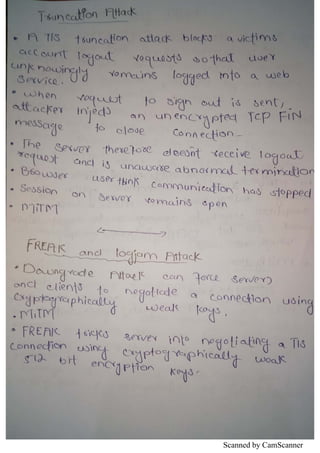 Truncation Attack
• A TLS truncation attack blocks a victims
account logout requests so that user
unknowingly remains logged into a web
service.
• When request to sign out is sent,
attacker injects an unencrypted TCP FIN
message to close connection.
• The server therefore doesnt receive logout
request and is unaware abnormal termination
• Browser user think communication has stopped
• Session on server remains open
• MiTM
FREAK and logjam Attack
• Downgrade Attack can force servers
and clients to negotiate a connection using
cryptographically weak keys.
• MiTM
• FREAK tricks server into negotiating a TLS
connection using cryptographically weak
512 bit encryption keys.
Scanned by CamScanner